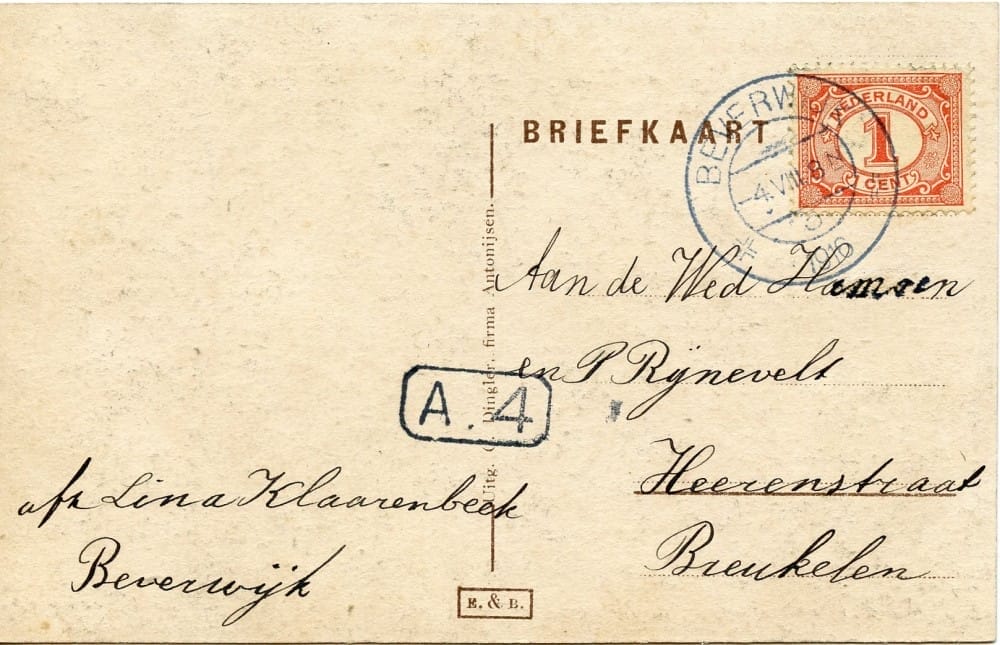 BRIEFKAART
NEDERLAND
1
CENT
BEVERW
4.VIII.
1916
Aan de Wed Hamsen
en P Rijnevelt
Heerenstraat
Breukelen
A.4
afz Lina Klaarenbeek
Beverwijk
Uitg. Dingler, firma Antonijsen.
E. & B.